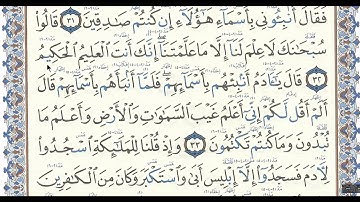 فَقَالَ أَنۢبِـُٔونِى بِأَسْمَآءِ هَٰٓؤُلَآءِ إِن كُنتُمْ صَٰدِقِينَ ٣١ قَالُوا۟
سُبْحَٰنَكَ لَا عِلْمَ لَنَآ إِلَّا مَا عَلَّمْتَنَآ إِنَّكَ أَنتَ ٱلْعَلِيمُ ٱلْحَكِيمُ
٣٢ قَالَ يَٰٓـَٔادَمُ أَنۢبِئْهُم بِأَسْمَآئِهِمْ فَلَمَّآ أَنۢبَأَهُم بِأَسْمَآئِهِمْ قَالَ
أَلَمْ أَقُل لَّكُمْ إِنِّىٓ أَعْلَمُ غَيْبَ ٱلسَّمَٰوَٰتِ وَٱلْأَرْضِ وَأَعْلَمُ مَا
تُبْدُونَ وَمَا كُنتُمْ تَكْتُمُونَ ٣٣ وَإِذْ قُلْنَا لِلْمَلَٰٓئِكَةِ ٱسْجُدُوا۟
لِـَٔادَمَ فَسَجَدُوٓا۟ إِلَّآ إِبْلِيسَ أَبَىٰ وَٱسْتَكْبَرَ وَكَانَ مِنَ ٱلْكَٰفِرِينَ